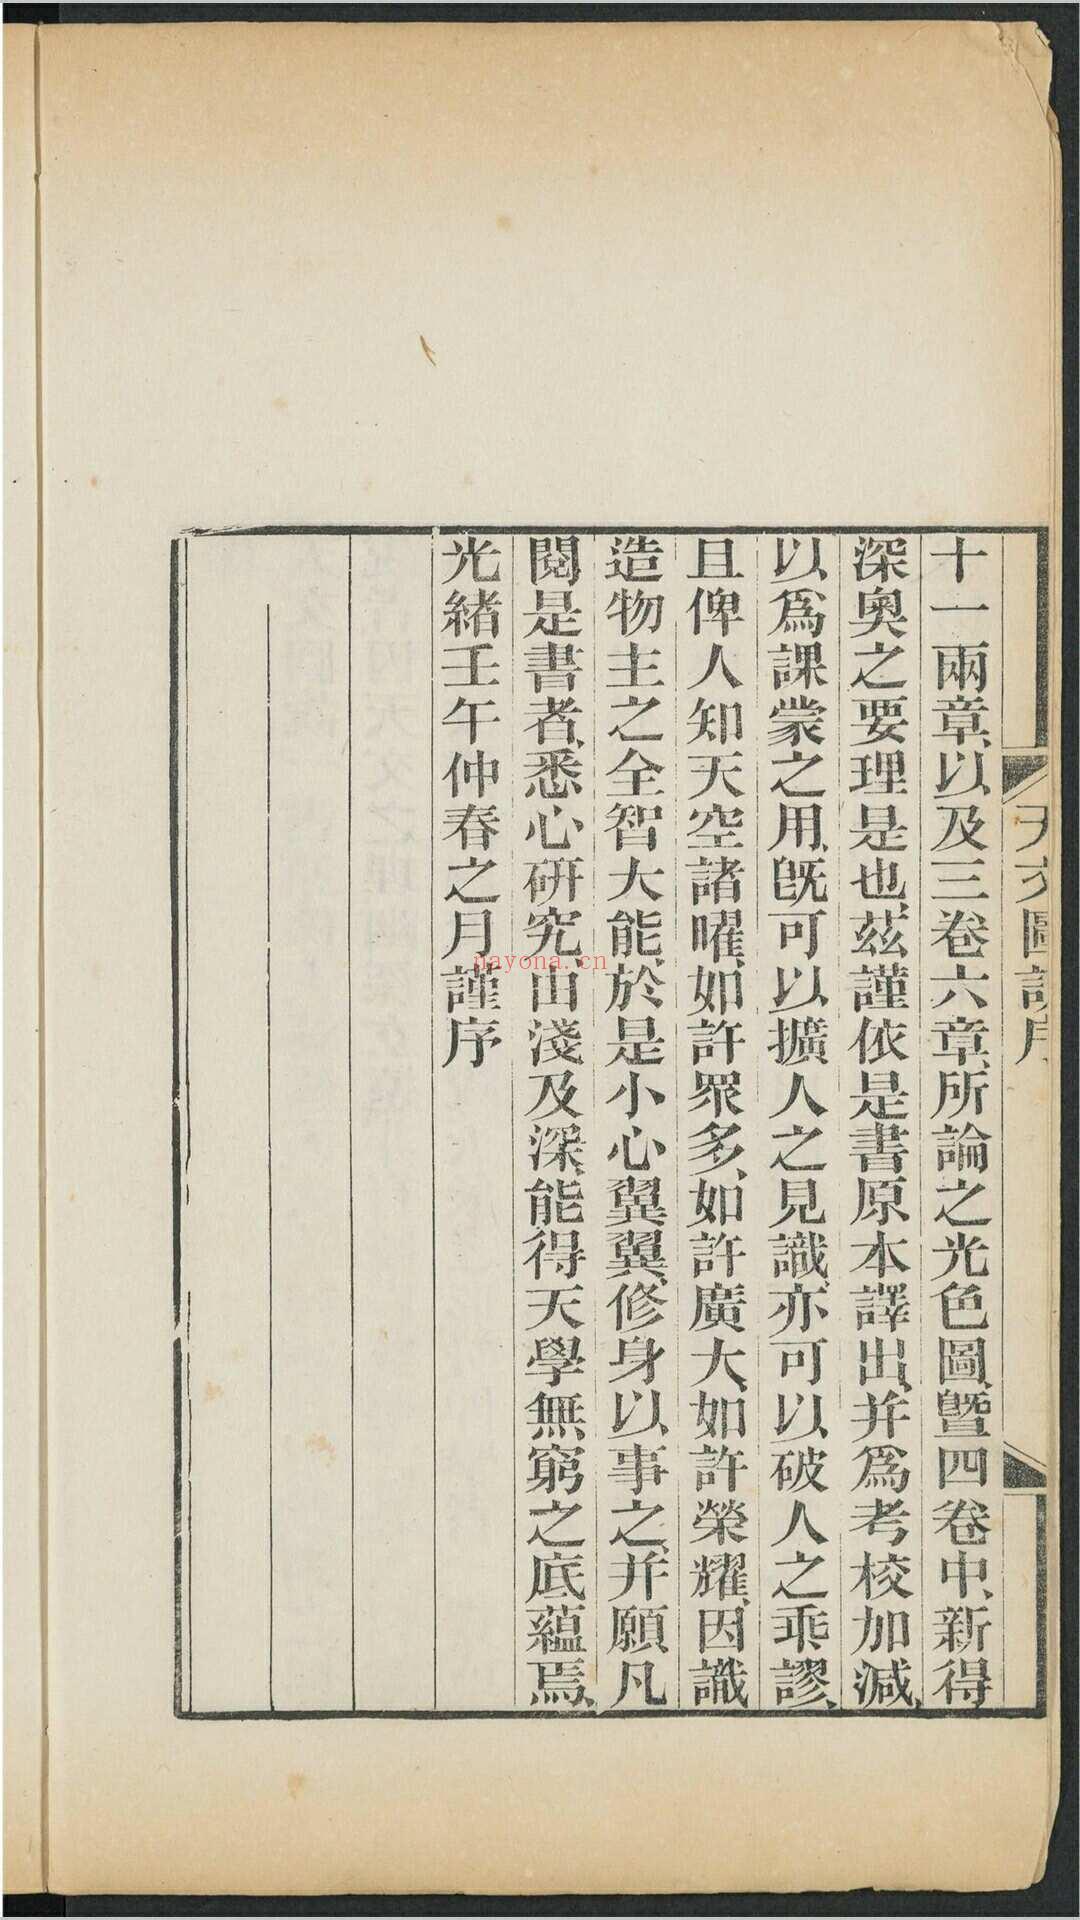 天文圖說序
十一兩章、以及三卷六章、所論之光色圖、曁四卷中、新得
深奧之要理是也、茲謹依是書原本譯出、并爲考校加減、
以爲課蒙之用、旣可以擴人之見識、亦可以破人之乖謬、
且俾人知天空諸曜、如許眾多、如許廣大、如許榮耀、因識
造物主之全智大能、於是小心翼翼、修身以事之、并願凡
閱是書者、悉心研究、由淺及深、能得天學無窮之底蘊焉、
光緒壬午仲春之月謹序
nayona.cn